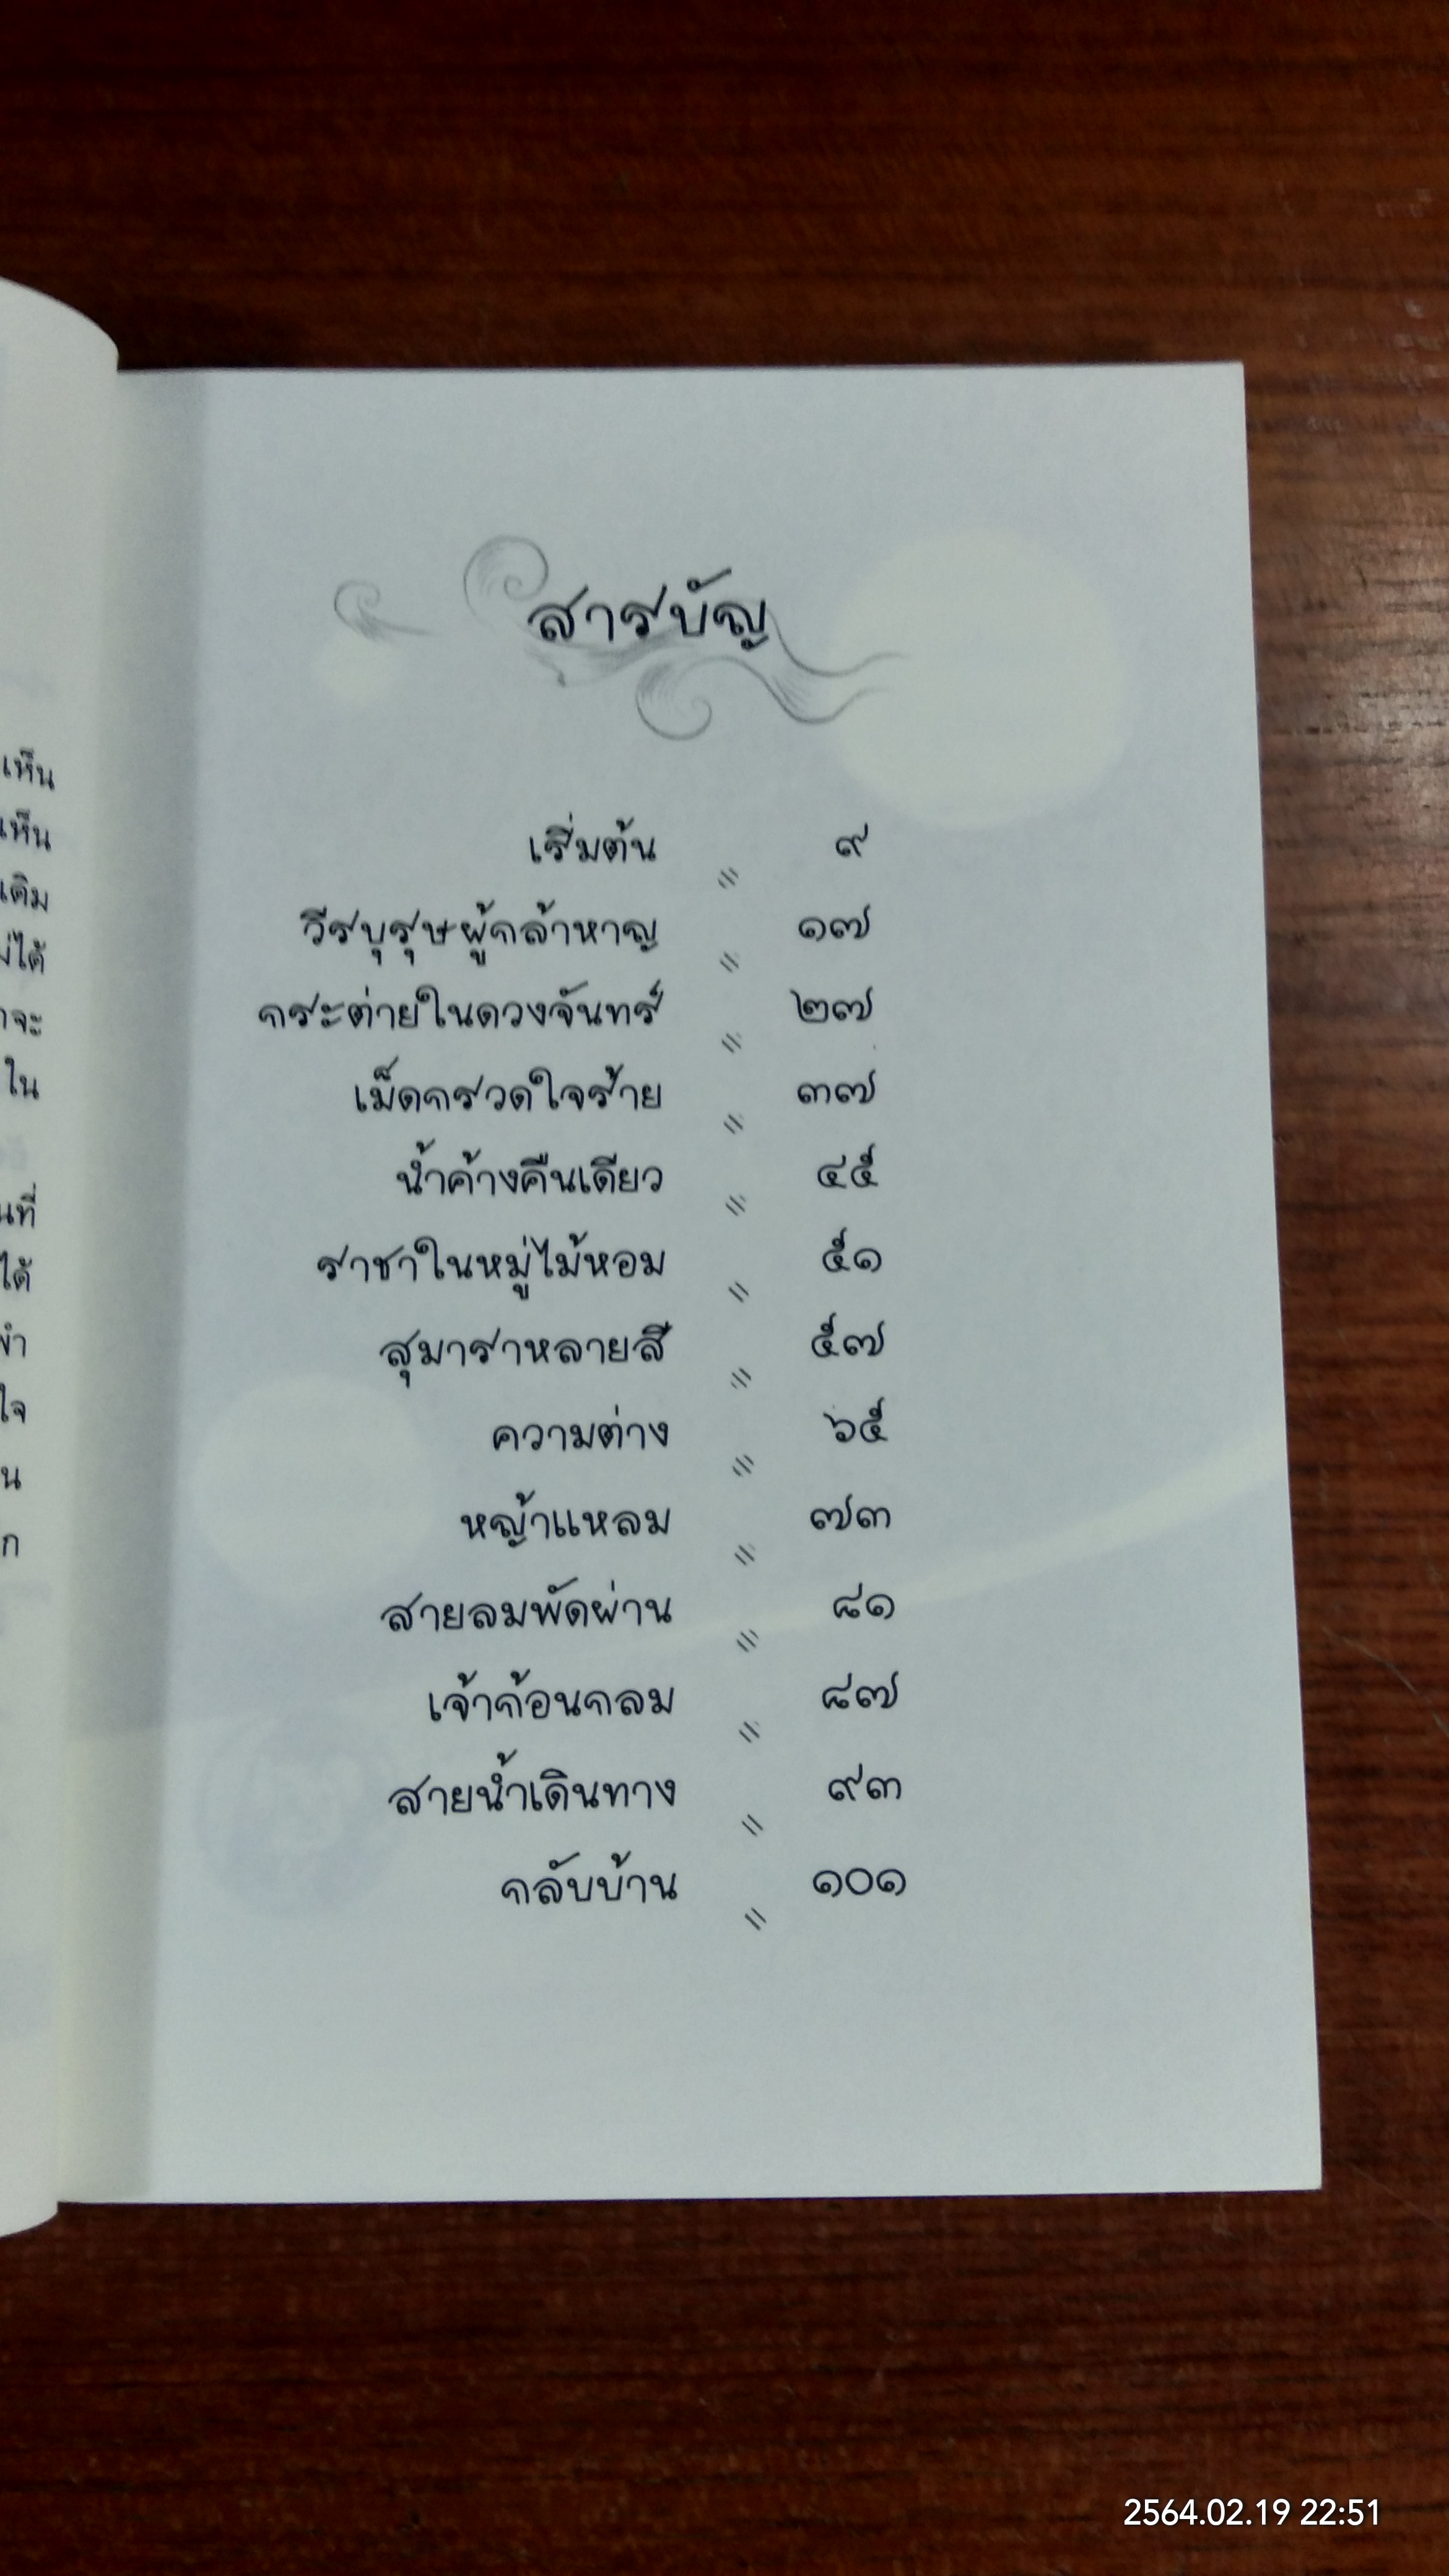 สารบัญ
เริ่มต้น " ๙
วีรบุรุษผู้กล้าหาญ " ๑๗
กระต่ายในดวงจันทร์ " ๒๗
เม็ดกรวดใจร้าย " ๓๗
น้ำค้างคืนเดียว " ๔๕
ราชาในหมู่ไม้หอม " ๕๑
สุมาราหลายสี " ๕๗
ความต่าง " ๖๕
หญ้าแหลม " ๗๓
สายลมพัดผ่าน " ๘๑
เจ้าก้อนกลม " ๘๗
สายน้ำเดินทาง " ๙๓
กลับบ้าน " ๑๐๑
เห็น
เห็น
เดิม
ได้
จะ
ใน
ที่
ได้
ใจ
2564.02.19 22:51